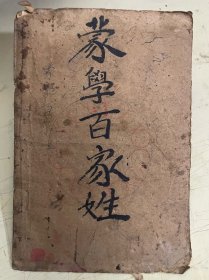 蒙學百家姓